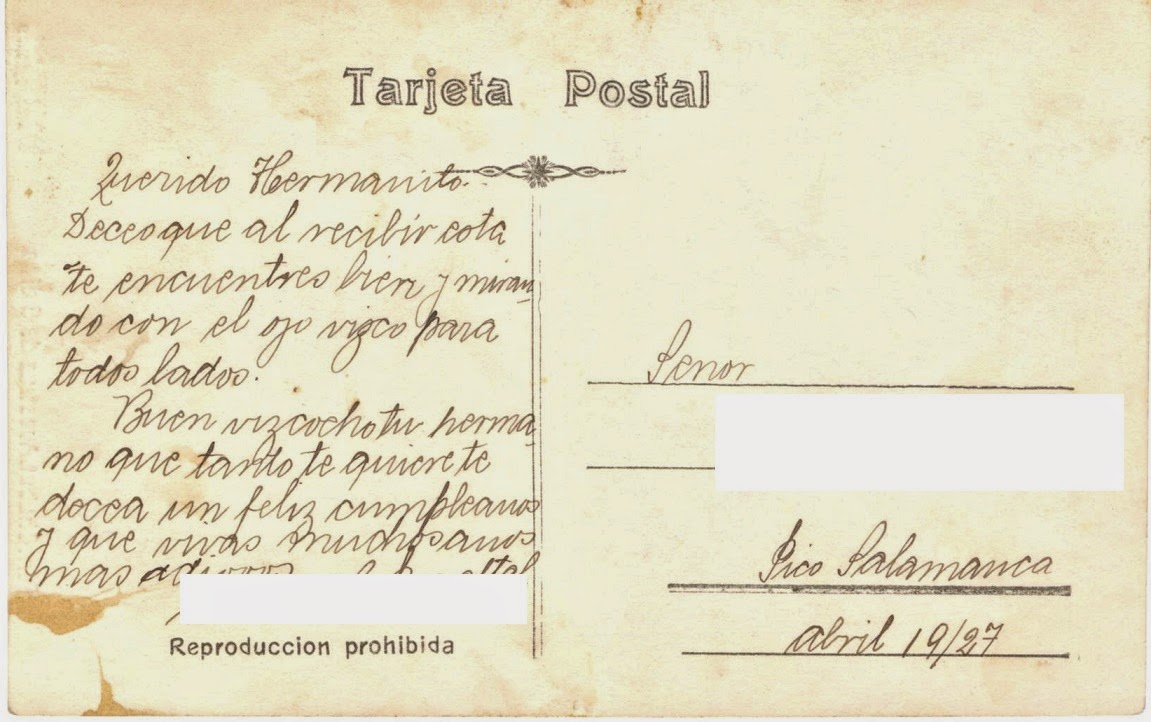 Tarjeta Postal
Querido Hermanito.
Deceo que al recibir esta
te encuentres bien y miran-
do con el ojo vizco para
todos lados.
Buen vizcocho tu herma-
no que tanto te quiere te
decea un feliz cumpleanos
y que vivas muchos anos
mas
Reproduccion prohibida
Senor
Pico Salamanca
abril 19/27